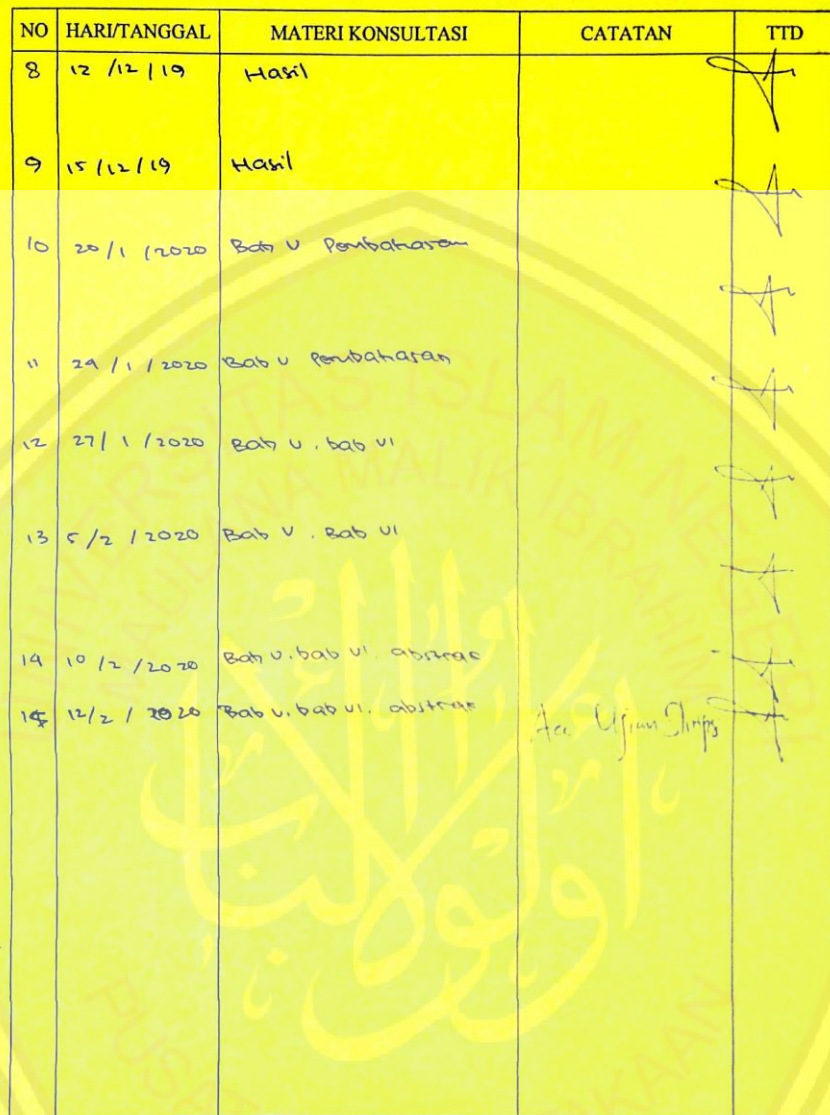 NO HARI/TANGGAL MATERI KONSULTASI CATATAN TTD
8 12/12/19 Hasil
9 15/12/19 Hasil
10 20/1/2020 Bab V Pembahasan
11 24/1/2020 Bab V Pembahasan
12 27/1/2020 Bab V, bab VI
13 5/2/2020 Bab V, Bab VI
14 10/2/2020 Bab V, bab VI, abstrak
15 12/2/2020 Bab V, bab VI, abstrak Acc Ujian Skripsi
UNIVERSITAS ISLAM NEGERI
MAULANA MALIK IBRAHIM